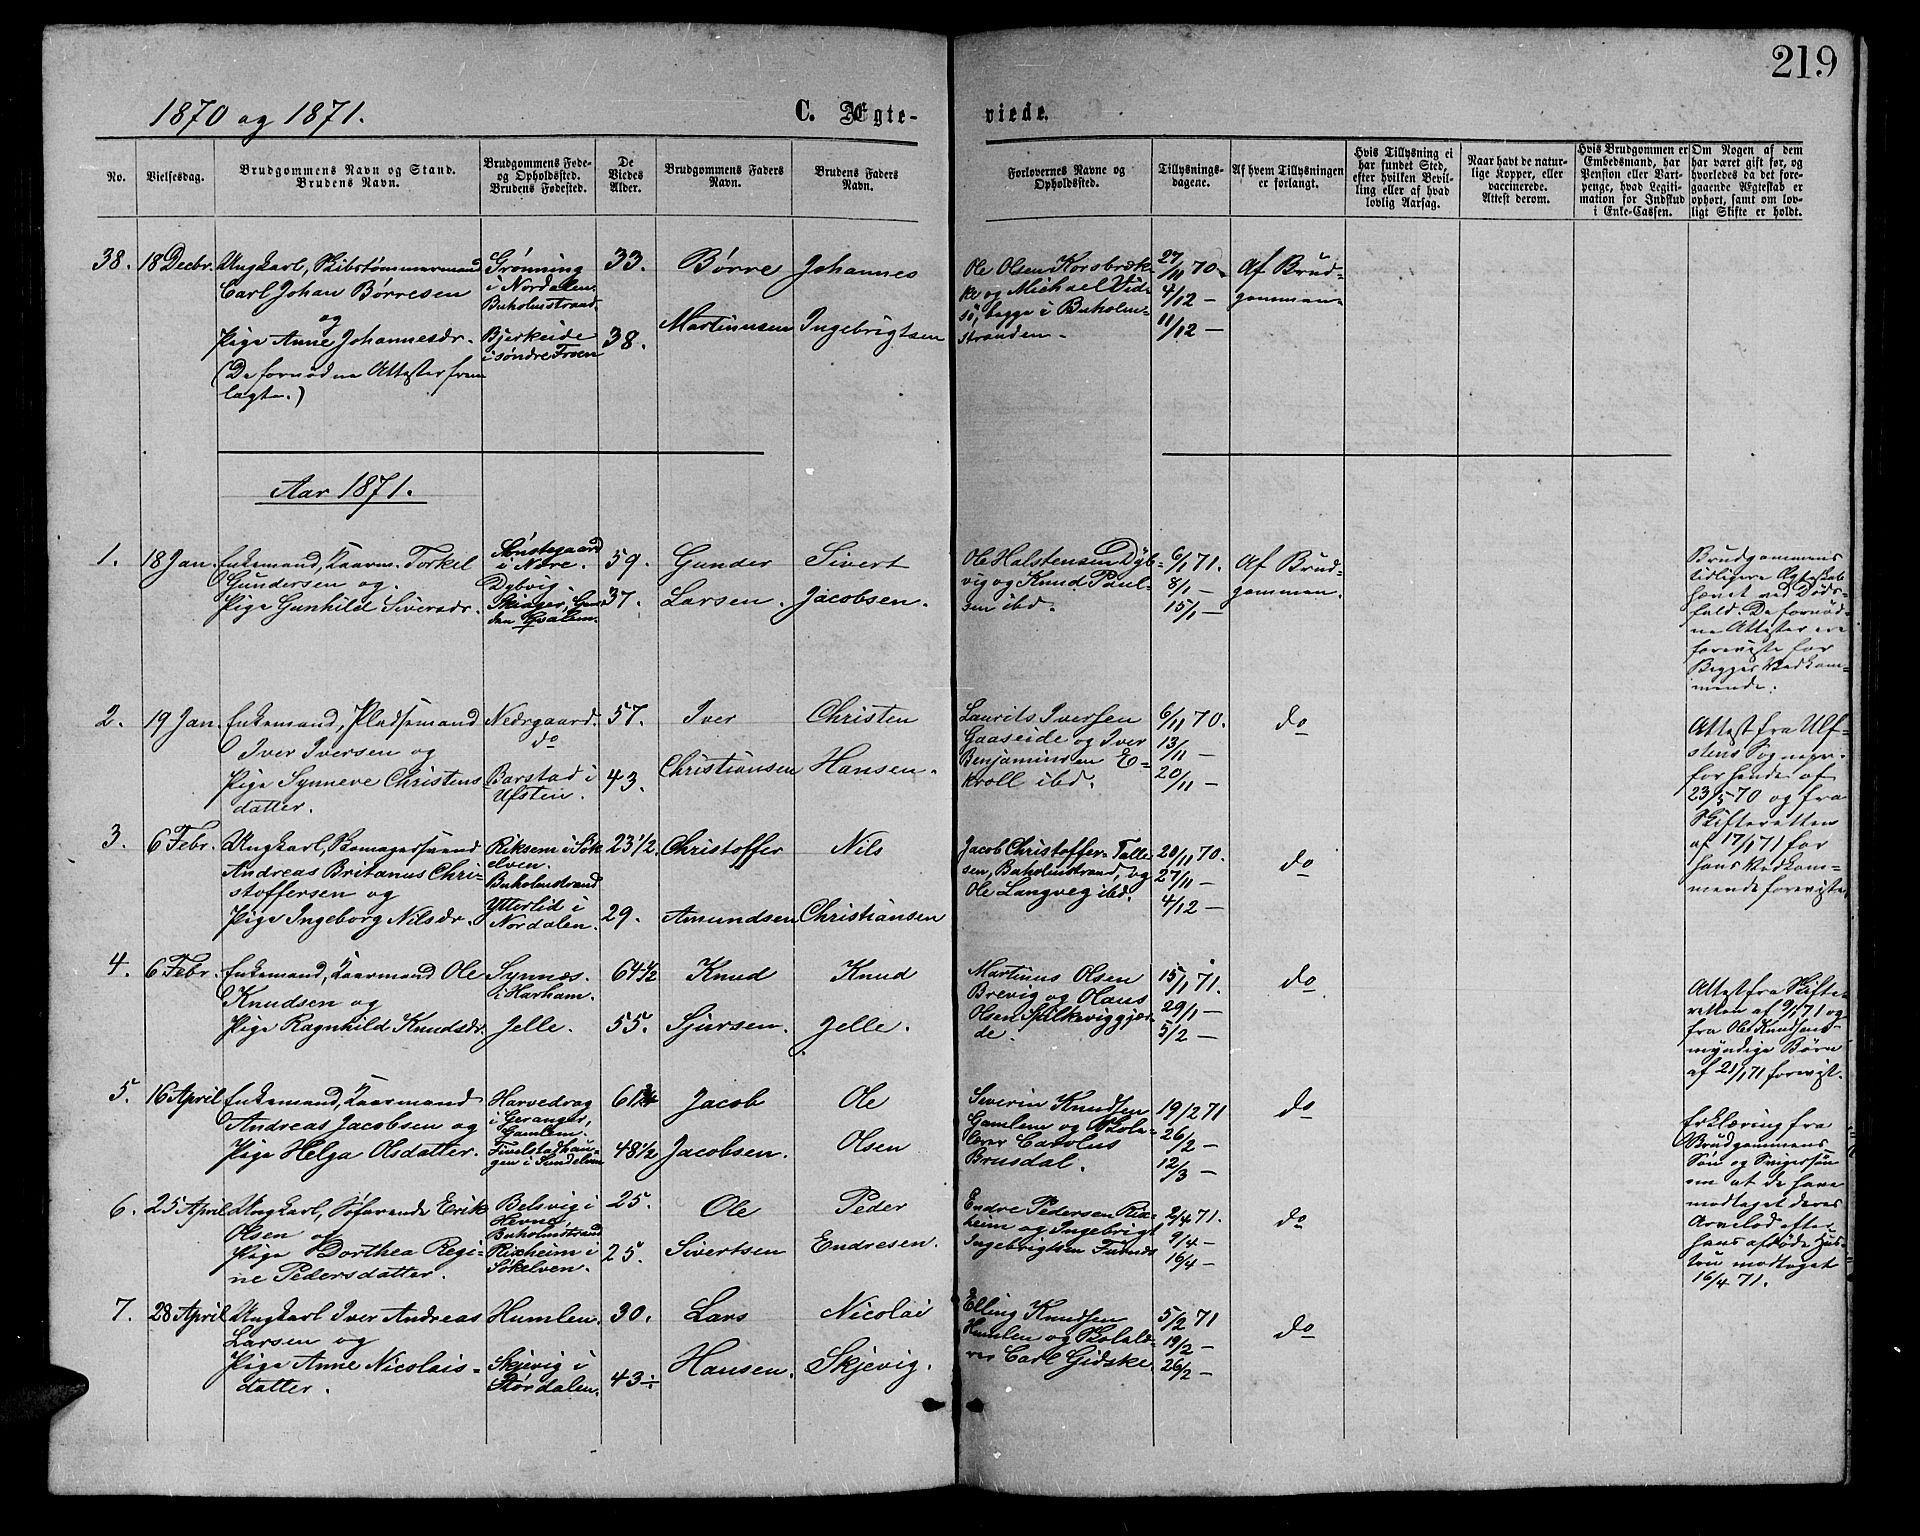 219
1870 og 1871.
C. Ægte-
viede.
No.
Vielsesdag.
Brudgommens Navn og Stand.
Brudens Navn.
Brudgommens Føde-
og Opholdssted.
Brudens Fødested.
De
Viedes
Alder.
Brudgommens Faders
Navn.
Brudens Faders
Navn.
Forlovernes Navne og
Opholdssted.
Tillysnings-
dagene.
Af hvem Tillysningen
er forlangt.
Hvis Tillysning ei
har fundet Sted,
efter hvilken Bevil-
ling eller af hvad
lovlig Aarsag.
Naar havt de natur-
lige Kopper, eller
vaccinerede.
Attest derom.
Hvis Brudgommen er
Embedsmand, har
Pension eller Vart-
penge, hvad Legiti-
mation for Indskud
i Enke-Cassen.
Om Nogen af dem
har været gift før, og
hvorledes da det fore-
gaaende Ægteskab er
ophørt, samt om lov-
ligt Skifte er holdt.
38.
18 Decbr.
Ungkarl, Skibstømmermand
Carl Johan Børresen
og
Pige Anne Johannesdr.
(De fornødne Attester frem
lagte.)
Grønning
i Nordalen.
Buholmstrand.
Bjerkeide
i søndre Froen
33.
38.
Børre
Martinusen
Johannes
Ingebrigtsen
Ole Olsen Korsbræk-
ke og Michael Vid-
sö, begge i Buholm-
stranden.
27/11 70.
4/12 —
11/12 —
Af Brud-
gommen
Aar 1871.
1.
18 Jan.
Enkemand, Kaarm. Torkel
Gundersen og
Pige Gunhild Siversdr.
i Nære.
Dybvig
59.
37.
Gunder
Larsen.
Sivert
Jacobsen.
Ole Halstensen Dyb-
vig og Knud Paul-
sen ibd.
6/1 71.
8/1 —
15/1 —
Af Brud-
gommen.
Brudgommens
tidligere Ægteskab
hævet ved Døds-
fald. De fornød-
ne Attester ere
foreviste for
Begges Vedkom-
mende.
2.
19 Jan.
Enkemand, Pladsemand
Iver Iversen og
Pige Synneve Christens
datter.
Nedrgaard.
do
Barstad i
Ufsten.
57.
43.
Iver
Christiansen
Christen
Hansen.
Laurits Iversen
Gaaseide og Iver
Benjaminsen E-
kroll ibd.
6/11 70.
13/11 —
20/11 —
do
Attest fra Ulf-
stens Sognepr.
for hende af
23/5 70 og fra
Skifteretten
af 17/1 71 for
hans Vedkom-
mende foreviste.
3.
6 Febr.
Ungkarl,
Andreas Britanus Chri-
stoffersen og
Pige Ingeborg Nilsdr.
Riksem i Søk
elven.
Buholmstrand
Ytterlid i
Nordalen.
23 1/2.
29.
Christoffer
Amundsen
Nils
Christiansen
Jacob Christoffer Talle-
sen, Buholmstrand, og
Ole Langveg ibd.
20/11 70.
27/11 —
4/12 —
do
4.
6 Febr.
Enkemand, Kaarmand Ole
Knudsen og
Pige Ragnhild Knudsdr.
Synnæs.
i Harham.
Jelle.
64 1/2
55.
Knud
Sjursen.
Knud
Jelle.
Martinus Olsen
Brevig og Olaus
Olsen Spilkeviggjær-
de.
15/1 71.
29/1 —
5/2 —
do
Attest fra Skifte
retten af 9/1 71 og
fra Ole Knudsens
myndige Børn
af 21/1 71 forevist.
5.
16 April
Enkemand, Kaarmand
Andreas Jacobsen og
Pige Helga Olsdatter.
Harvedrag
i Geranger,
Gamlem.
Fivelstadhau-
gen i Sundelven
61 3/4
48 1/2
Jacob
Jacobsen.
Ole
Olsen
Severin Knudsen
Gamlem og Skole-
lærer Carolus
Brusdal.
19/2 71
26/2 —
12/3 —
do
Erklæring fra
Brudgommens
Søn og Svigersøn
om at de have
modtaget deres
Arvelod efter
hans afdøde Hus-
tru modtaget
16/4 71.
6.
25 April
Ungkarl, Søfarende Erik
Olsen og
Pige Dorthea Regi-
ne Pedersdatter.
Belsvig i
Hevne,
Buholmstrand
Rixheim i
Søkelven.
25.
25.
Ole
Sivertsen
Peder
Endresen.
Endre Pedersen Rix-
heim og Ingebrigt
Ingebrigtsen Furnæs
2/4 71.
9/4 —
16/4 —
do
7.
28 April
Ungkarl Iver Andreas
Larsen og
Pige Anne Nicolais-
datter.
Humlen.
Skjevig i
Stordalen.
30.
43
Lars
Hansen.
Nicolai
Skjevig.
Elling Knudsen
Humlen og Skolelæ-
rer Carl Gidske.
5/2 71
19/2 —
26/2 —
do